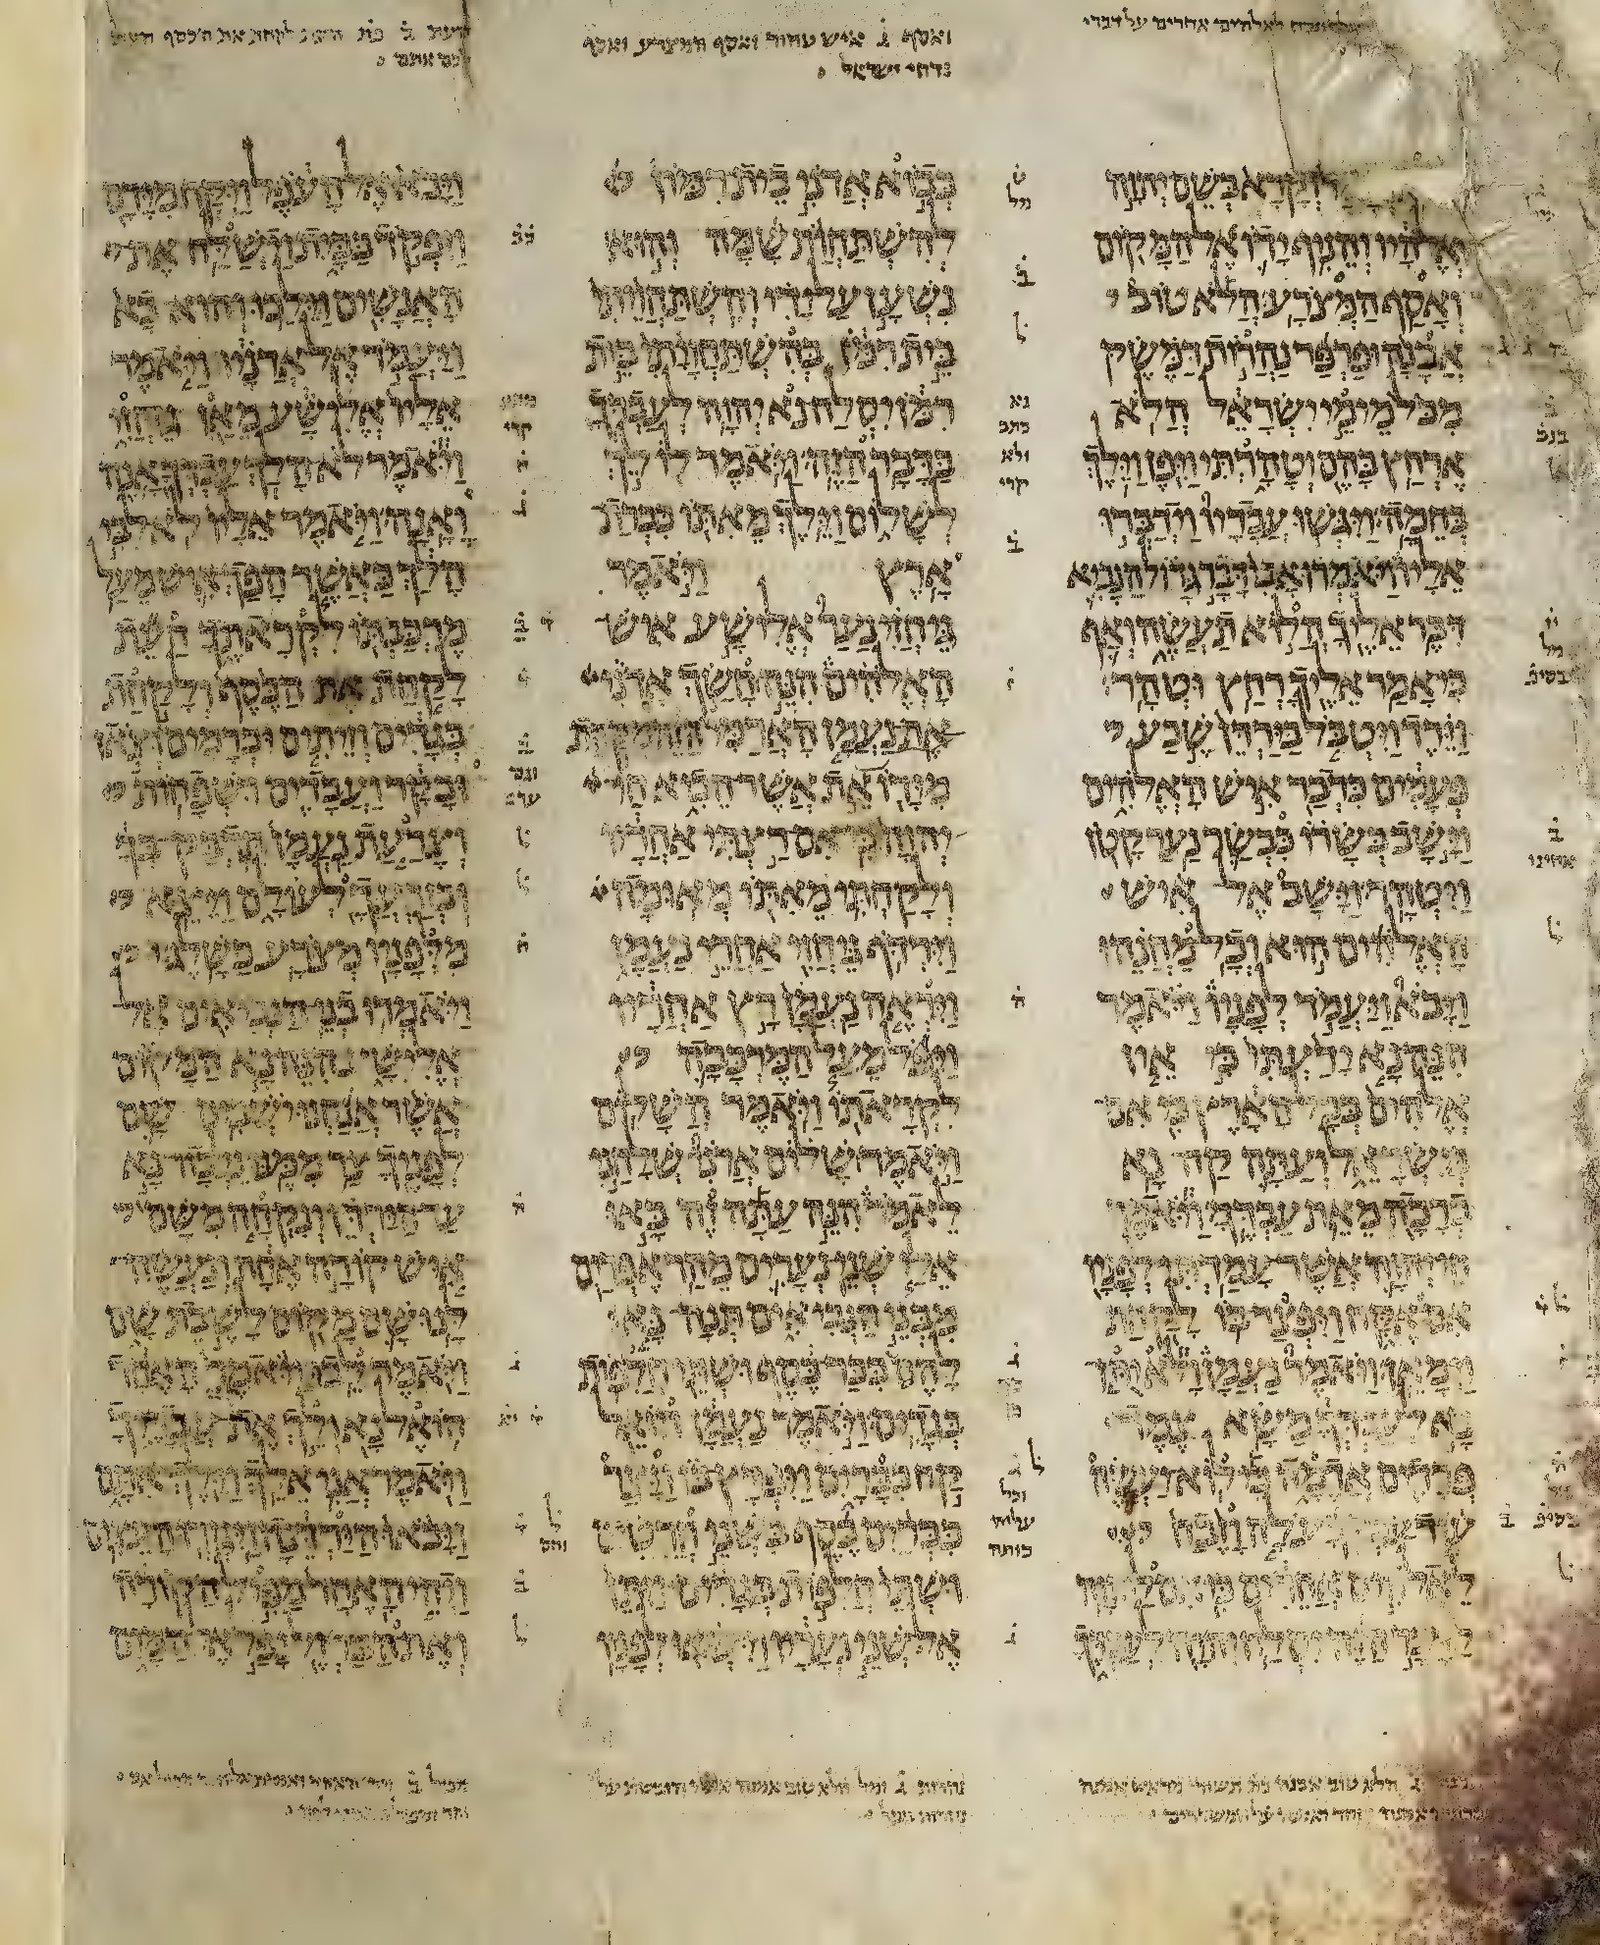 לאלהים אחרים על דברי
וקרא בשם יהוה
אלהיו והניף ידו אל המקום
ואסף המצרע הלא טוב
אבנה ופרפר נהרות דמשק
מכל מימי ישראל הלא
ארחץ בהם וטהרתי ויפן וילך
בחמה ויגשו עבדיו וידברו
אליו ויאמרו אבי דבר גדול הנביא
דבר אליך הלוא תעשה ואף
כי אמר אליך רחץ וטהר
וירד ויטבל בירדן שבע
פעמים כדבר איש האלהים
וישב בשרו כבשר נער קטן
ויטהר וישב אל איש
האלהים הוא וכל מחנהו
ויבא ויעמד לפניו ויאמר
הנה נא ידעתי כי אין
אלהים בכל הארץ כי אם
בישראל ועתה קח נא
ברכה מאת עבדך ויאמר
חי יהוה אשר עמדתי לפניו
אם אקח ויפצר בו לקחת
וימאן ויאמר נעמן ולא יתן
נא לעבדך משא צמד
פרדים אדמה כי לוא יעשה
עוד עבדך עלה וזבח
לאלהים אחרים כי אם
לדבר הזה יסלח יהוה לעבדך
ואסף ג איש טהור ואסף המצרע ואסף
נדחי ישראל
בבוא אדני בית רמון
להשתחות שמה והוא
נשען על ידי והשתחויתי
בית רמן בהשתחויתי בית
רמן יסלח נא יהוה לעבדך
בדבר הזה ויאמר לו לך
לשלום וילך מאתו כברת
ארץ ויאמר
גיחזי נער אלישע איש
האלהים הנה חשך אדני
את נעמן הארמי הזה מקחת
מידו את אשר הביא חי
יהוה כי אם רצתי אחריו
ולקחתי מאתו מאומה
וירדף גיחזי אחרי נעמן
ויראה נעמן רץ אחריו
ויפל מעל המרכבה
לקראתו ויאמר השלום
ויאמר שלום אדני שלחני
לאמר הנה עתה זה באו
אלי שני נערים מהר אפרים
מבני הנביאים תנה נא
להם ככר כסף ושתי חלפות
בגדים ויאמר נעמן הואל
קח ככרים ויפרץ בו ויצר
ככרים כסף בשני חרטים
ושתי חלפות בגדים ויתן
אל שני נעריו וישאו לפניו
לקחת את הכסף
ויבא אל העפל ויקח מידם
ויפקד בבית וישלח את
האנשים וילכו והוא בא
ויעמד אל אדניו ויאמר
אליו אלישע מאן גחזי
ויאמר לא הלך עבדך אנה
ואנה ויאמר אליו לא לבי
הלך כאשר הפך איש מעל
מרכבתו לקראתך העת
לקחת את הכסף ולקחת
בגדים וזיתים וכרמים וצאן
ובקר ועבדים ושפחות
וצרעת נעמן תדבק בך
ובזרעך לעולם ויצא
מלפניו מצרע כשלג
ויאמרו בני הנביאים אל
אלישע הנה נא המקום
אשר אנחנו ישבים שם
לפניך צר ממנו נלכה נא
עד הירדן ונקחה משם
איש קורה אחת ונעשה
לנו שם מקום לשבת שם
ויאמר לכו ויאמר האחד
הואל נא ולך את עבדיך
ויאמר אני אלך וילך אתם
ויבאו הירדנה ויגזרו העצים
ויהי האחד מפיל הקורה
ואת הברזל נפל אל המים